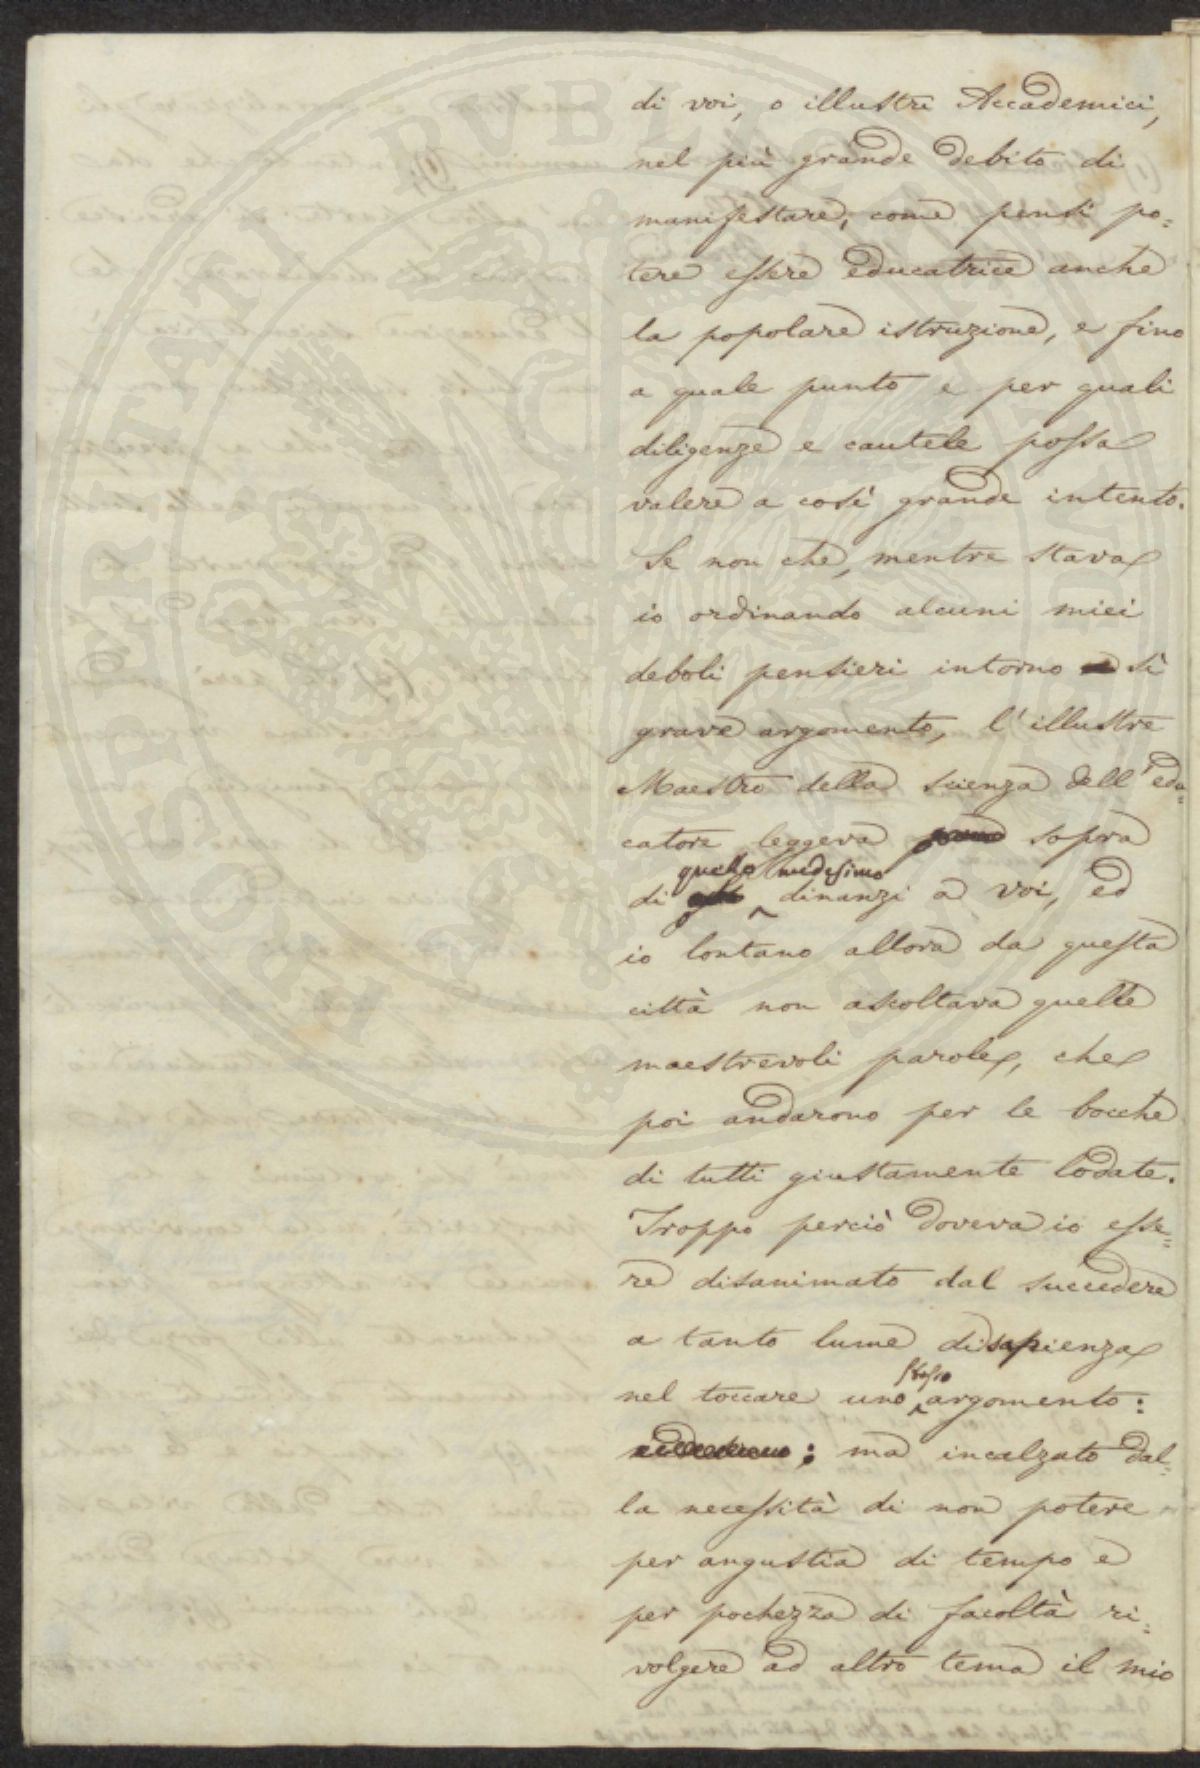 di voi, o illustri Accademici,
nel più grande debito di
manifestare, come pensi po=
tere essere educatrice anche
la popolare istruzione, e fino
a quale punto e per quali
diligenze e cautele possa
valere a così grande intento.
Se non che, mentre stava
io ordinando alcuni miei
deboli pensieri intorno sì
grave argomento, l'illustre
Maestro della scienza dell'edu=
catore leggeva sopra
quello medesimo
di dinanzi a voi, ed
io lontano allora da questa
città non ascoltava quelle
maestrevoli parole, che
poi andarono per le bocche
di tutti giustamente lodate.
Troppo perciò doveva io esse=
re disanimato dal succedere
a tanto lume di sapienza
stesso
nel toccare uno argomento:
; ma incalzato dal=
la necessità di non potere
per angustia di tempo e
per pochezza di facoltà ri=
volgere ad altro tema il mio
PROSPERITATI PVBLICAE